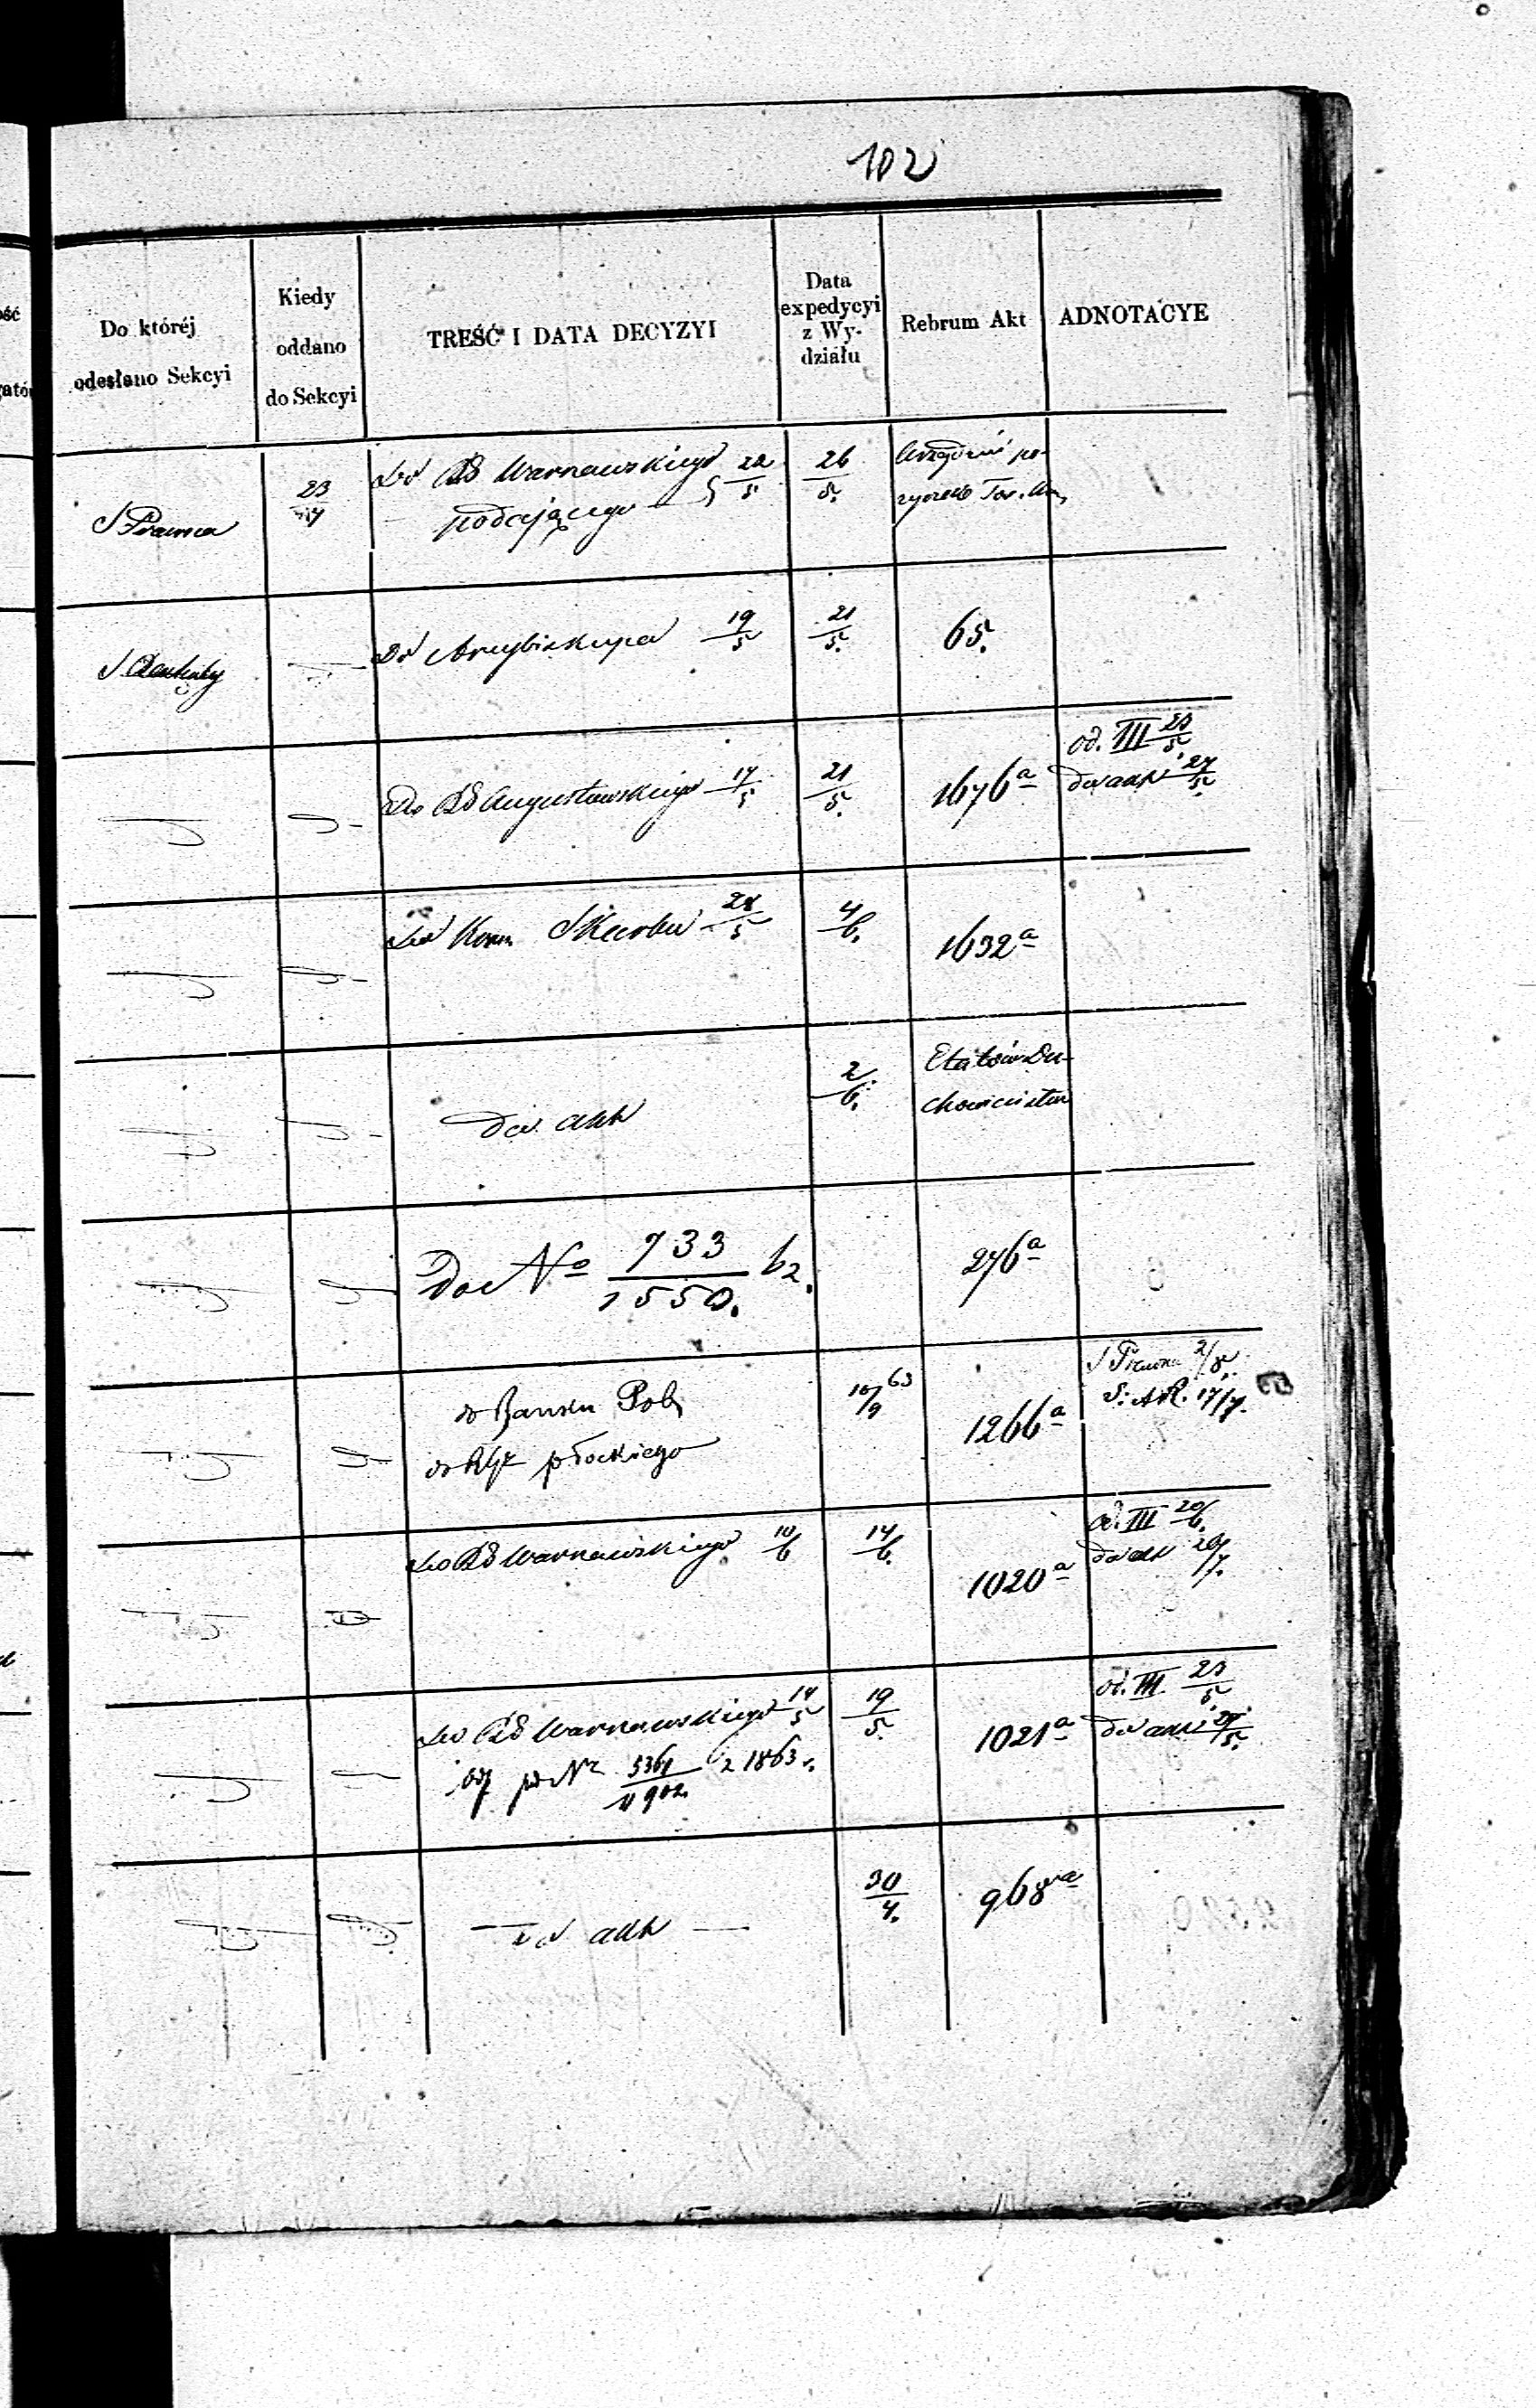 102
Do któréj
odesłano Sekcyi
Kiedy
oddano
do Sekcyi
TREŚĆ I DATA DECYZYI
Data
expedycyi
z Wy-
działu
Rebrum Akt
ADNOTACYE
S Prawna
23/4
Do RG Warszawskiego 22/5
podającego
26/5.
Do Arcybiskupa 19/5
21/5.
65.
Do RG Augustowskiego 17/5
21/5.
1676 a
od. III 23/5
do akt 27/5.
Do Kom Skarbu 28/5
4/6.
1632 a
do akt
2/6.
Etatów Du-
chowieństwa
Do No 733/1550. 62.
276 a
do Banku Pol
do RG płockiego
10/9 63
1266 a
S Prawna 2/5.
17/7.
Do RG Warszawskiego 10/6
14/6.
1020 a
od. III 20/6.
do akt 20/7.
Do RG Warszawskiego 14/5
odp pod Nr 5361/11902 z 1863 r.
19/5.
1021 a
od. III 23/5
do akt 27/5.
do akt
30/4.
968 a